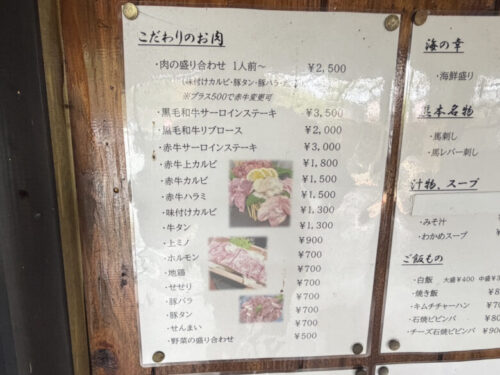 こだわりのお肉
・肉の盛り合わせ 1人前～ ￥2,500
(味付けカルビ・豚タン・豚バラ・
※プラス500で赤牛変更可
・黒毛和牛サーロインステーキ ￥3,500
・黒毛和牛リブロース ￥2,000
・赤牛サーロインステーキ ￥3,000
・赤牛上カルビ ￥1,800
・赤牛カルビ ￥1,500
・赤牛ハラミ ￥1,500
・味付けカルビ ￥1,300
・牛タン ￥1,300
・上ミノ ￥900
・ホルモン ￥700
・地鶏 ￥700
・せせり ￥700
・豚バラ ￥700
・豚タン ￥700
・せんまい ￥700
・野菜の盛り合わせ ￥500
海の幸
・海鮮盛り
熊本名物
・馬刺し
・馬レバー刺し
汁物、スープ
・みそ汁
・わかめスープ ￥
ご飯もの
・白飯 大盛￥400 中盛￥3
・焼き飯 ￥8
・キムチチャーハン ￥70
・石焼ビビンバ ￥80
・チーズ石焼ビビンバ ￥90